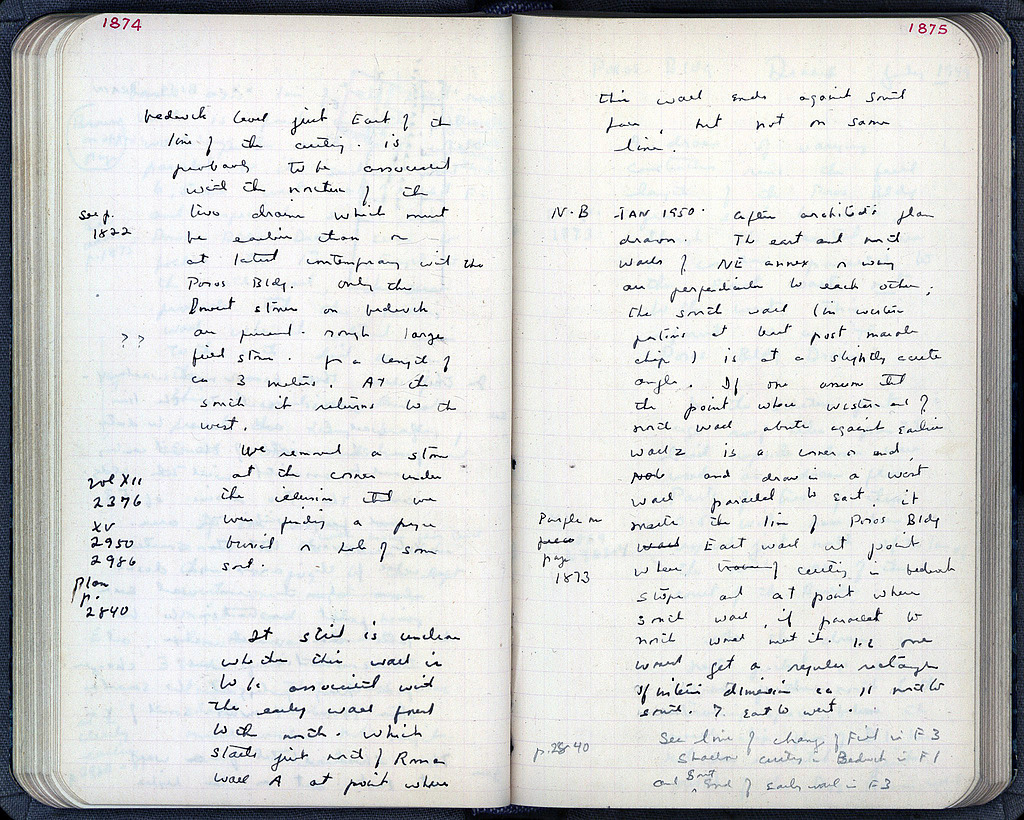 1874
bedrock level just East of the
line of the cutting. is
probably to be associated
with the nexten of the
see p.
1822
two drains which must
be earlier than or
at latest contemporary with the
Poros Bldg. only the
lowest stones on bedrock
are present. rough large
? ?
field stone. for a length of
ca 3 meters. AT the
south it returns to the
west.
We removed a stone
at the corner under
the illusion that we
were finding a pyre
burial or hole of some
sort.
vol XII
2376
XV
2950
2986
plan
p.
2840
It still is unclear
whether this wall is
to be associated with
the early wall found
to the north. which
starts just north of Roman
wall A at point where
1875
this wall ends against South
face, but not on same
line.
N.B JAN 1950. after architect's plan
drawn. The east and north
walls of NE annex or wing
are perpendicular to each other;
the south wall (in western
portions at least post marble
chip) is at a slightly acute
angle. If one assume that
the point where western end of
north wall abuts against earlier
wall 2 is a corner or end,
and draw in a west
wall parallel to East. it
meets the line of Poros Bldg
East wall at point
where of cutting in bedrock
stops and at point where
south wall, if parallel to
north would meet it. i.e. one
would get a regular rectangle
of interior dimension ca 11 north to
south. 7. East to west.
Purple on
page
1873
p. 2840
See line of change of Fill in F3
Shallow cutting in Bedrock in F1
and South End of early wall in F3